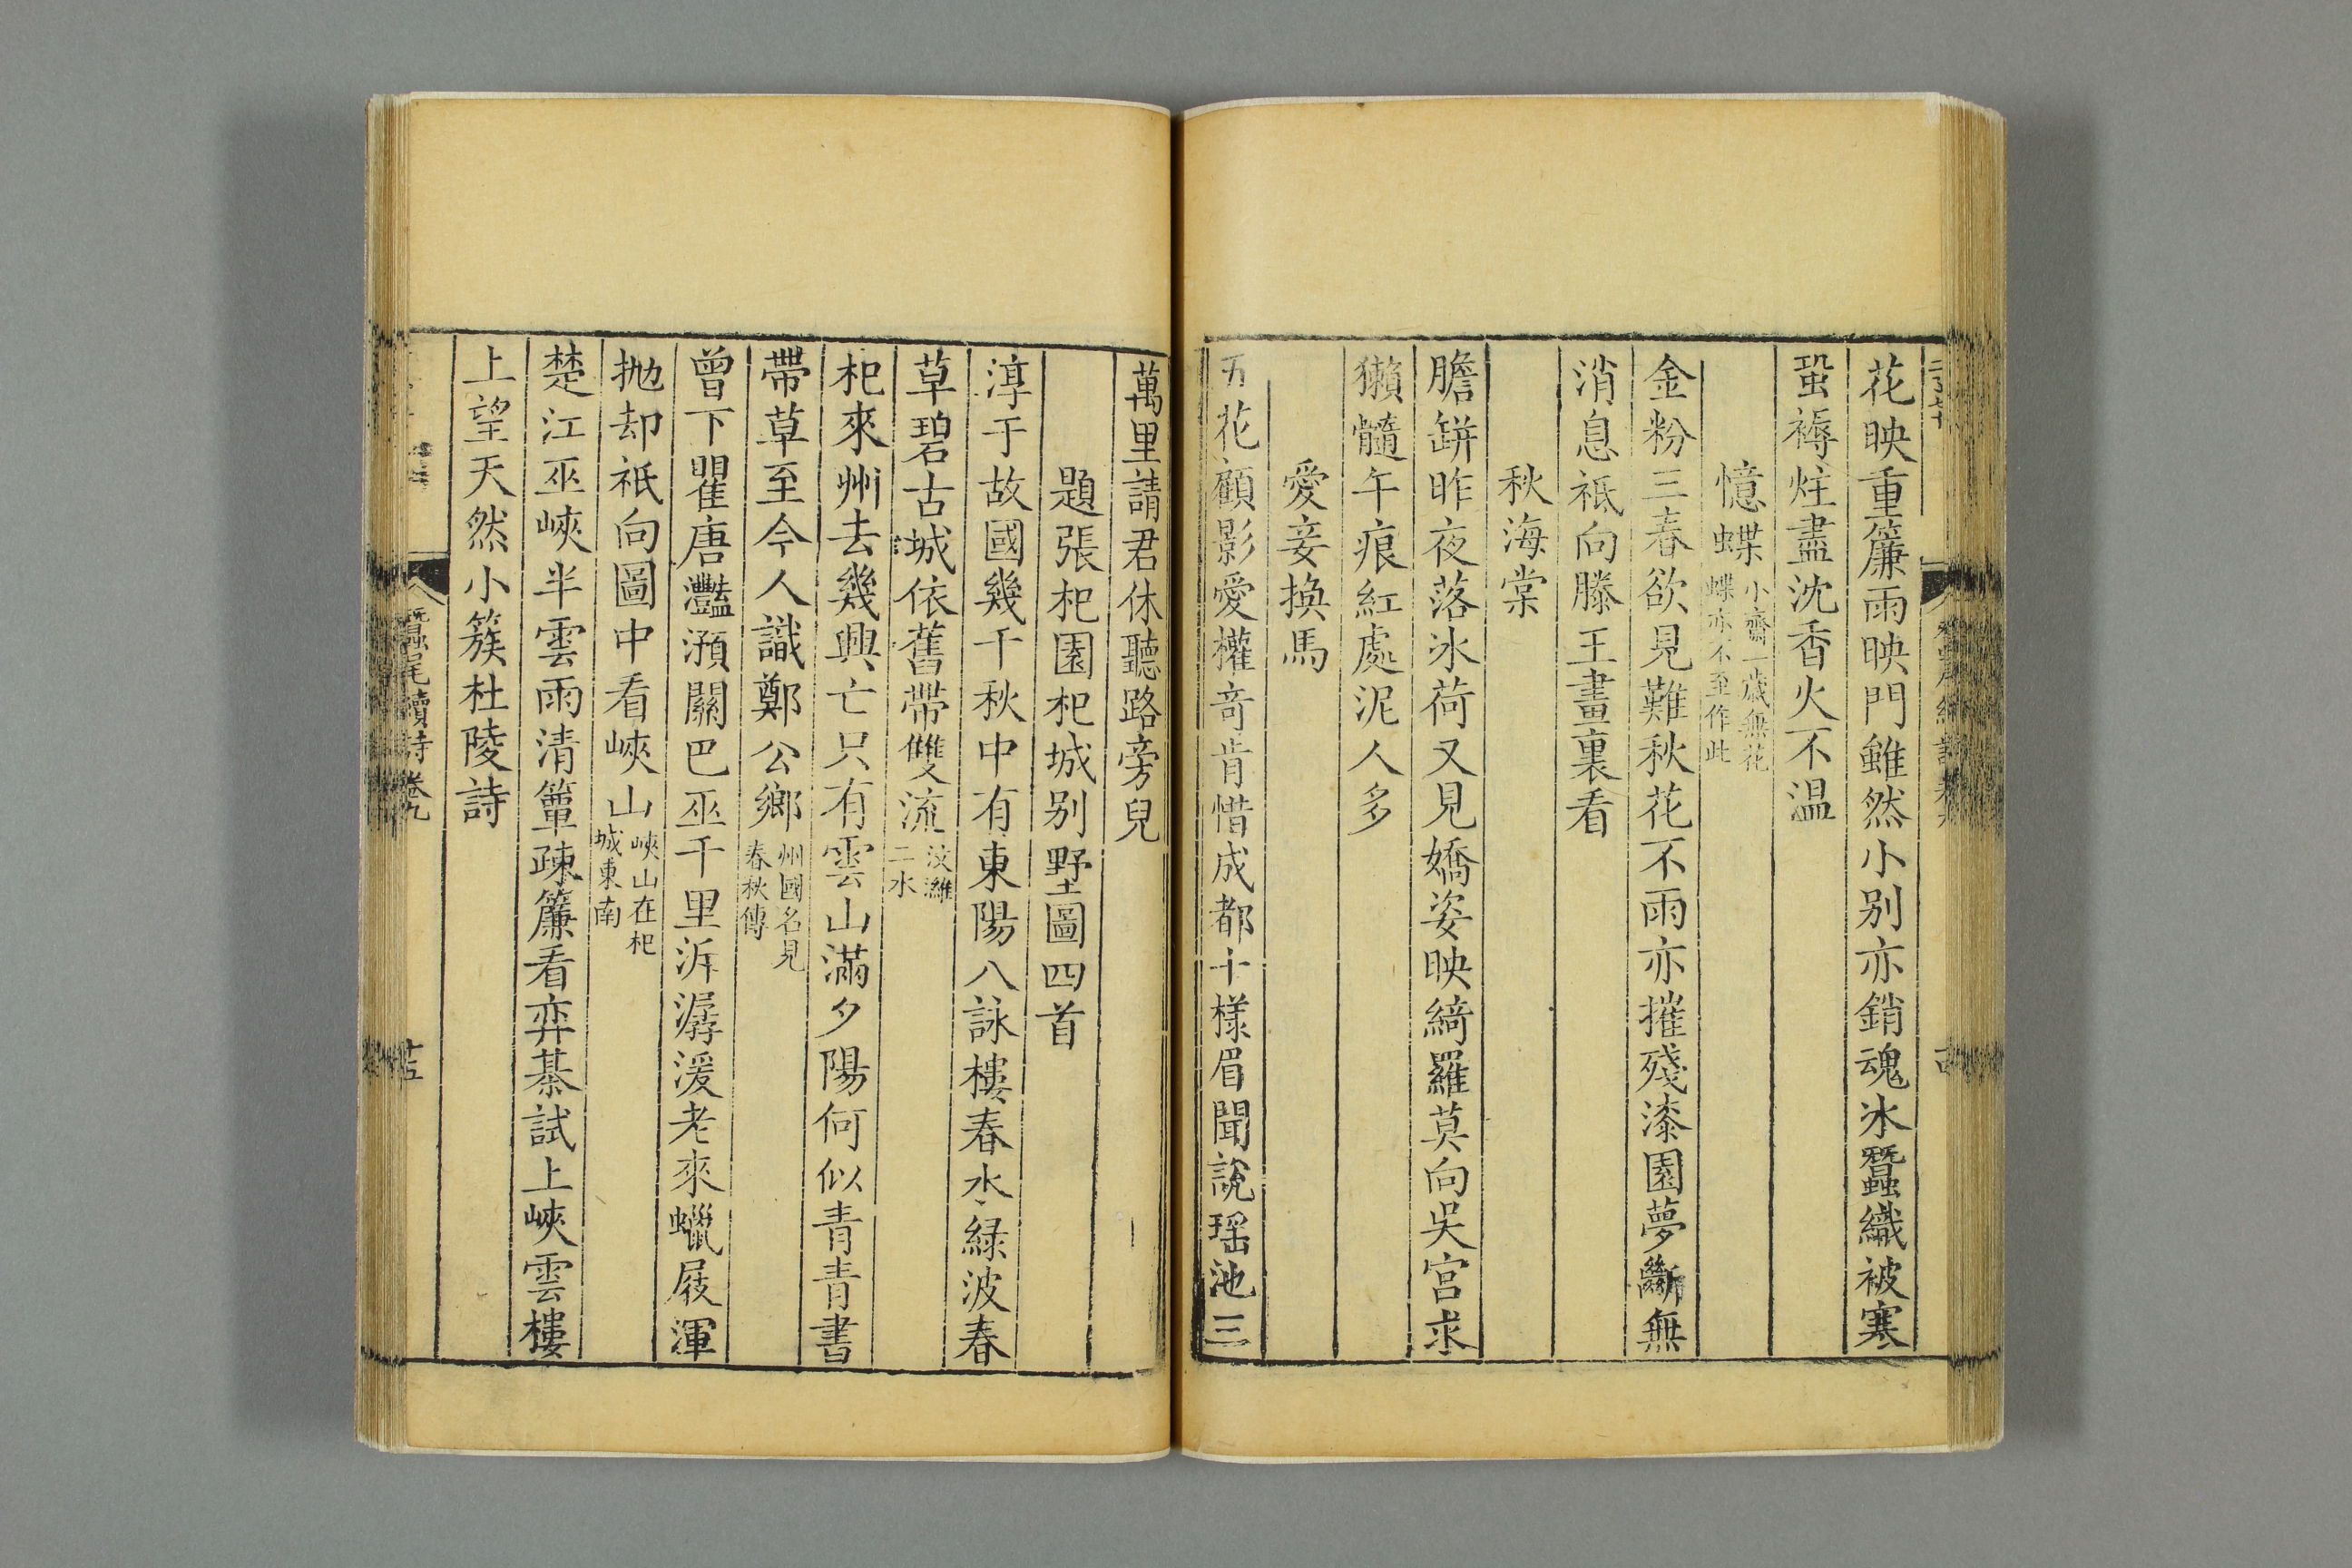 花映重簾雨映門雖然小别亦銷魂冰蠶織被寒
蛩褥炷盡沈香火不温
憶蝶
小齋一歲無花
蝶亦不至作此
金粉三春欲見難秋花不雨亦摧殘漆園夢斷無
消息祗向滕王畫裏看
秋海棠
膽缾昨夜落冰荷又見嬌姿映綺羅莫向吳宫求
獺髓午痕紅處泥人多
愛妾換馬
五花顧影愛權奇肯惜成都十樣眉聞說瑶池三
萬里請君休聽路旁兒
題張杞園杞城别墅圖四首
淳于故國幾千秋中有東陽八詠樓春水緑波春
草碧古城依舊帶雙流
汶濰
二水
杞來州去幾興亡只有雲山滿夕陽何似青青書
帶草至今人識鄭公鄉
州國名見
春秋傳
曾下瞿唐灔澦關巴巫千里泝潺湲老來蠟屐渾
抛却祗向圖中看峽山
峽山在杞
城東南
楚江巫峽半雲雨清簟疎簾看弈棊試上峽雲樓
上望天然小簇杜陵詩
蠶尾續詩卷九